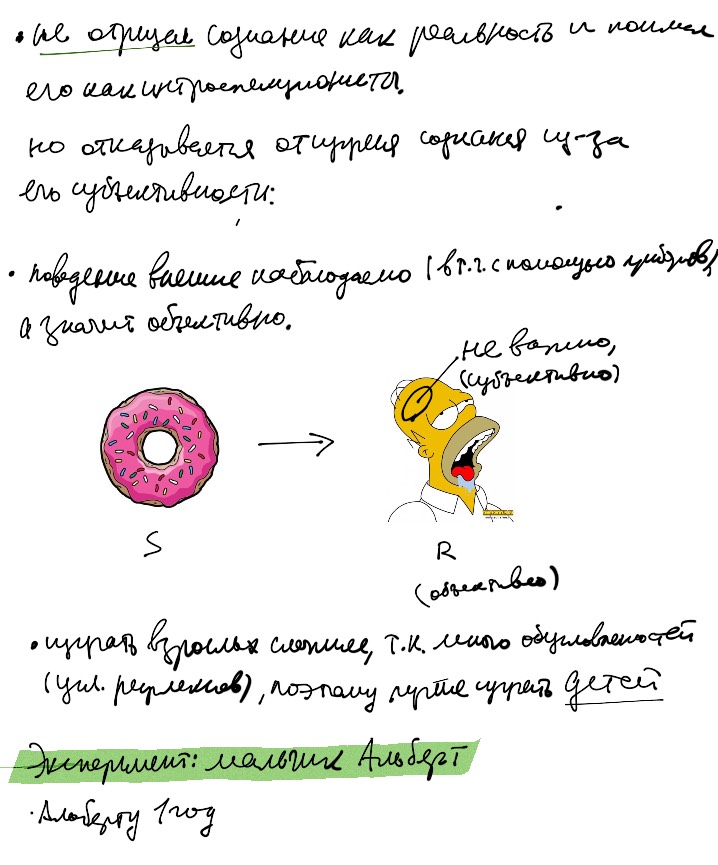 • не отрицал сознание как реальность и понимал
его как интроспекционисты.
но отказывается от изучения сознания из-за
его субъективности:
• поведение внешне наблюдаемо (в т.ч. с помощью приборов),
а значит объективно.
не важно,
(субъективно)
S
R
(объективно)
• изучать взрослых сложнее, т.к. много обусловленостей
(усл. рефлексов), поэтому лучше изучать детей
Эксперимент: мальчик Альберт
• Альберту 1 год